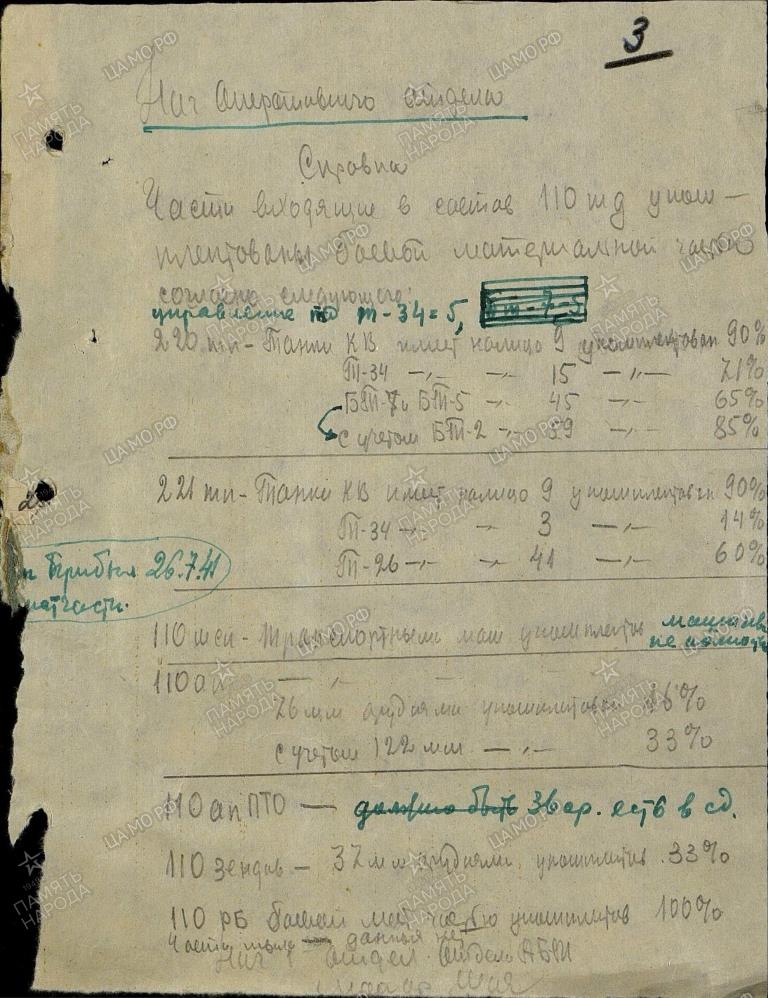 3
Нач Оперативного отдела
Справка
Части входящие в состав 110 тд уком-
плектованы боевой материальной частью
согласно следующего:
управление тд т-34=5,
220 тп - Танки КВ имеет налицо 9 укомплектован 90%
Т-34 -"- -"- 15 -"- 71%
БТ-7 и БТ-5 - 45 -"- 65%
с учетом БТ-2 -"- 59 -"- 85%
221 тп - Танки КВ имеет налицо 9 укомплектован 90%
Т-34 -"- -"- 3 -"- 14%
Т-26 -"- -"- 41 -"- 60%
прибыл 26.7.41
матчасти.
110 мсп - транспортными маш укомплектов машинами
не полностью
110 ап - " -
76 мм орудиями укомплектован 16%
с учетом 122 мм -"- 33%
110 ап ПТО — должно быть 36 ор. есть в сд.
110 зендив - 37 мм орудиями укомплектов. 33%
110 РБ боевой мат частью укомплектов 100%
Части тыла — данных нет
Нач отдел. Отдела АБТУ